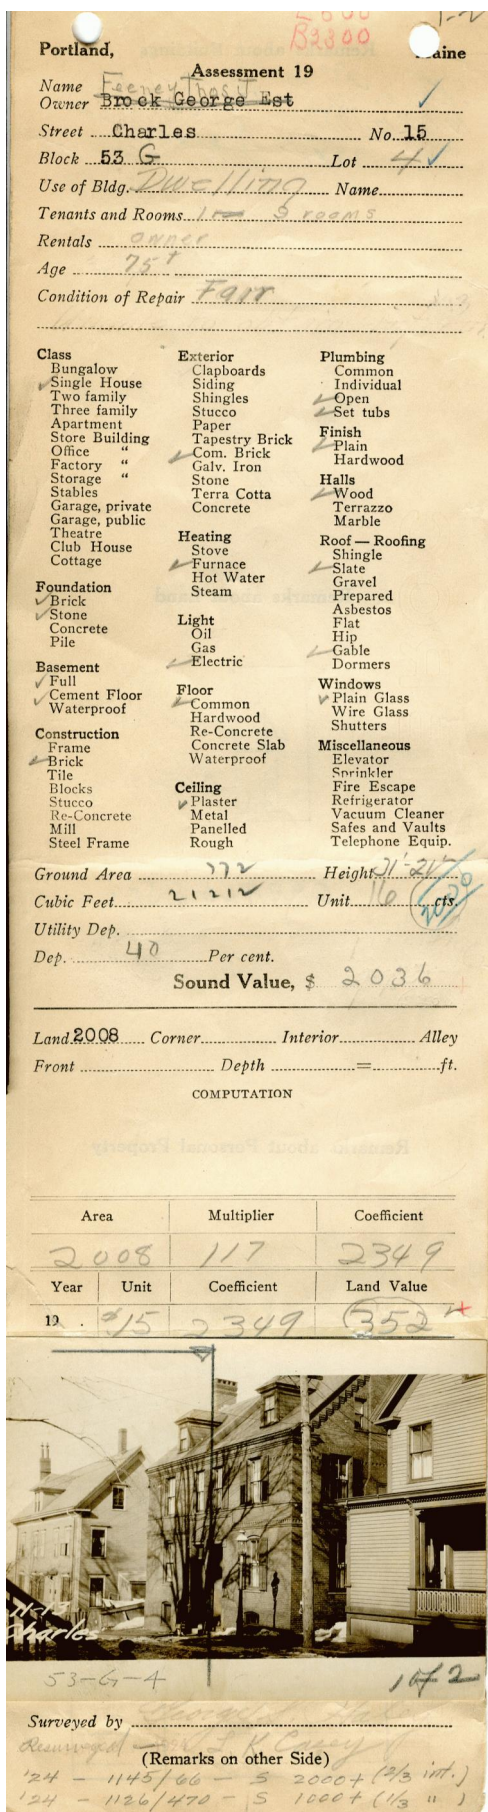 1-2
B2300
Portland, Maine
Assessment 19
Feeney Thos J
Name
Owner Brock George Est
Street Charles No. 15
Block 53 G Lot 4
Use of Bldg. Dwelling Name
Tenants and Rooms 1 — 9 rooms
Rentals owner
Age 75+
Condition of Repair Fair
Class
Bungalow
Single House
Two family
Three family
Apartment
Store Building
Office "
Factory "
Storage "
Stables
Garage, private
Garage, public
Theatre
Club House
Cottage
Foundation
Brick
Stone
Concrete
Pile
Basement
Full
Cement Floor
Waterproof
Construction
Frame
Brick
Tile
Blocks
Stucco
Re-Concrete
Mill
Steel Frame
Exterior
Clapboards
Siding
Shingles
Stucco
Paper
Tapestry Brick
Com. Brick
Galv. Iron
Stone
Terra Cotta
Concrete
Heating
Stove
Furnace
Hot Water
Steam
Light
Oil
Gas
Electric
Floor
Common
Hardwood
Re-Concrete
Concrete Slab
Waterproof
Ceiling
Plaster
Metal
Panelled
Rough
Plumbing
Common
Individual
Open
Set tubs
Finish
Plain
Hardwood
Halls
Wood
Terrazzo
Marble
Roof — Roofing
Shingle
Slate
Gravel
Prepared
Asbestos
Flat
Hip
Gable
Dormers
Windows
Plain Glass
Wire Glass
Shutters
Miscellaneous
Elevator
Sprinkler
Fire Escape
Refrigerator
Vacuum Cleaner
Safes and Vaults
Telephone Equip.
Ground Area 772 Height 31'-21'
Cubic Feet 21212 Unit 16 cts.
Utility Dep.
Dep. 40 Per cent.
Sound Value, $ 2036
Land 2008 Corner Interior Alley
Front Depth = ft.
COMPUTATION
Area Multiplier Coefficient
2008 117 2349
Year Unit Coefficient Land Value
19 . $15 2349 352
Charles
53-G-4 1072
Surveyed by
Resurveyed L R Casey
(Remarks on other Side)
'24 - 1145/66 - S 2000+ (2/3 int.)
'24 - 1126/470 - S 1000+ (1/3 ")